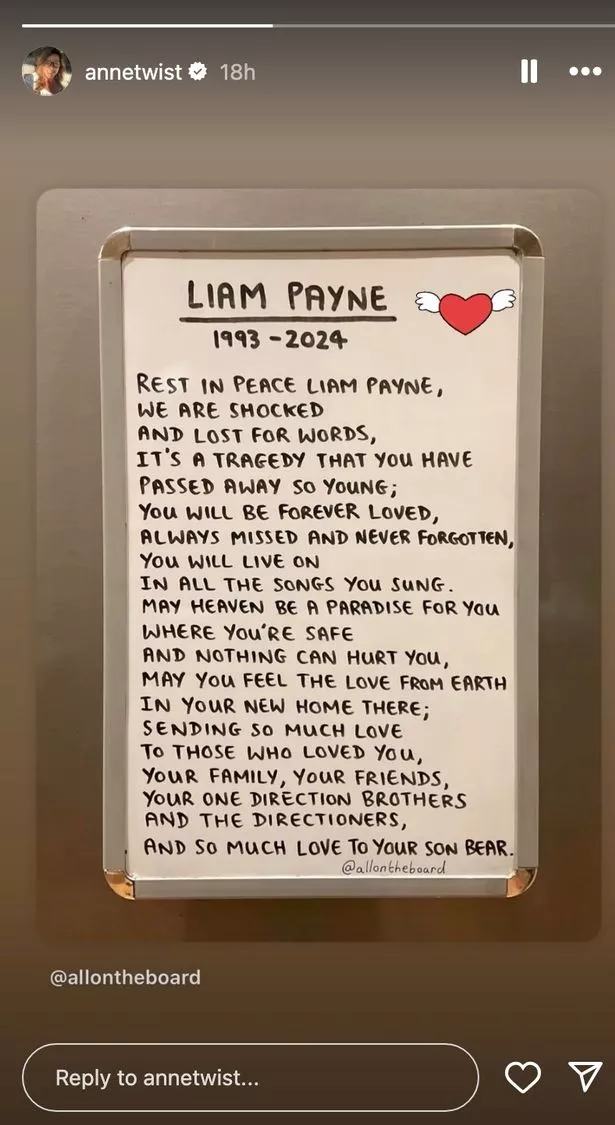 annetwist 18h
LIAM PAYNE
1993-2024
REST IN PEACE LIAM PAYNE,
WE ARE SHOCKED
AND LOST FOR WORDS,
IT'S A TRAGEDY THAT YOU HAVE
PASSED AWAY SO YOUNG;
YOU WILL BE FOREVER LOVED,
ALWAYS MISSED AND NEVER FORGOTTEN,
YOU WILL LIVE ON
IN ALL THE SONGS YOU SUNG.
MAY HEAVEN BE A PARADISE FOR YOU
WHERE YOU'RE SAFE
AND NOTHING CAN HURT YOU,
MAY YOU FEEL THE LOVE FROM EARTH
IN YOUR NEW HOME THERE;
SENDING SO MUCH LOVE
TO THOSE WHO LOVED YOU,
YOUR FAMILY, YOUR FRIENDS,
YOUR ONE DIRECTION BROTHERS
AND THE DIRECTIONERS,
AND SO MUCH LOVE TO YOUR SON BEAR.
@allontheboard
@allontheboard
Reply to annetwist...